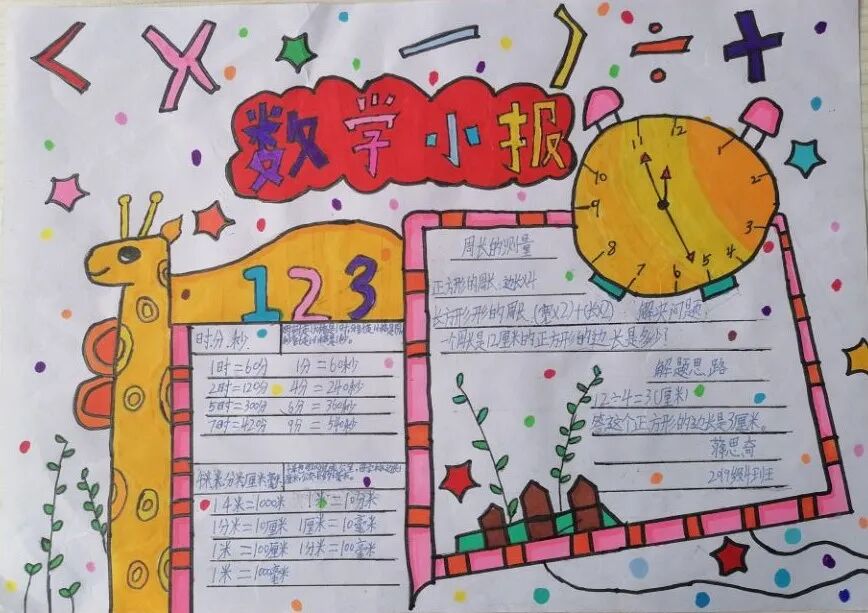 < × — ) ÷ +
数学小报
11 12 1 2 3 4 5 6 7 8 9 10
1 2 3
时分秒
1时=60分 1分=60秒
2时=120分 4分=240秒
5时=300分 6分=360秒
7时=420分 9分=540秒
千米米分米厘米毫米
1千米=1000米 1米=10分米
1分米=10厘米 1厘米=10毫米
1米=100厘米 1分米=100毫米
1米=1000毫米
周长的测量
正方形的周长:边长×4
长方形形的周长:(宽×2)+(长×2) 解决问题:
一个周长是12厘米的正方形的边长是多少?
解题思路
12÷4=3(厘米)
答这个正方形的边长是3厘米。
蒋思奇
班